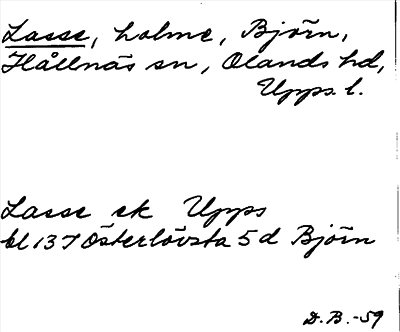 Lasse, holme, Björn,
Hållnäs sn, Olands hd,
Upps. l.
Lasse ek Upps
bl 137 Österlövsta 5d Björn
D.B.-59